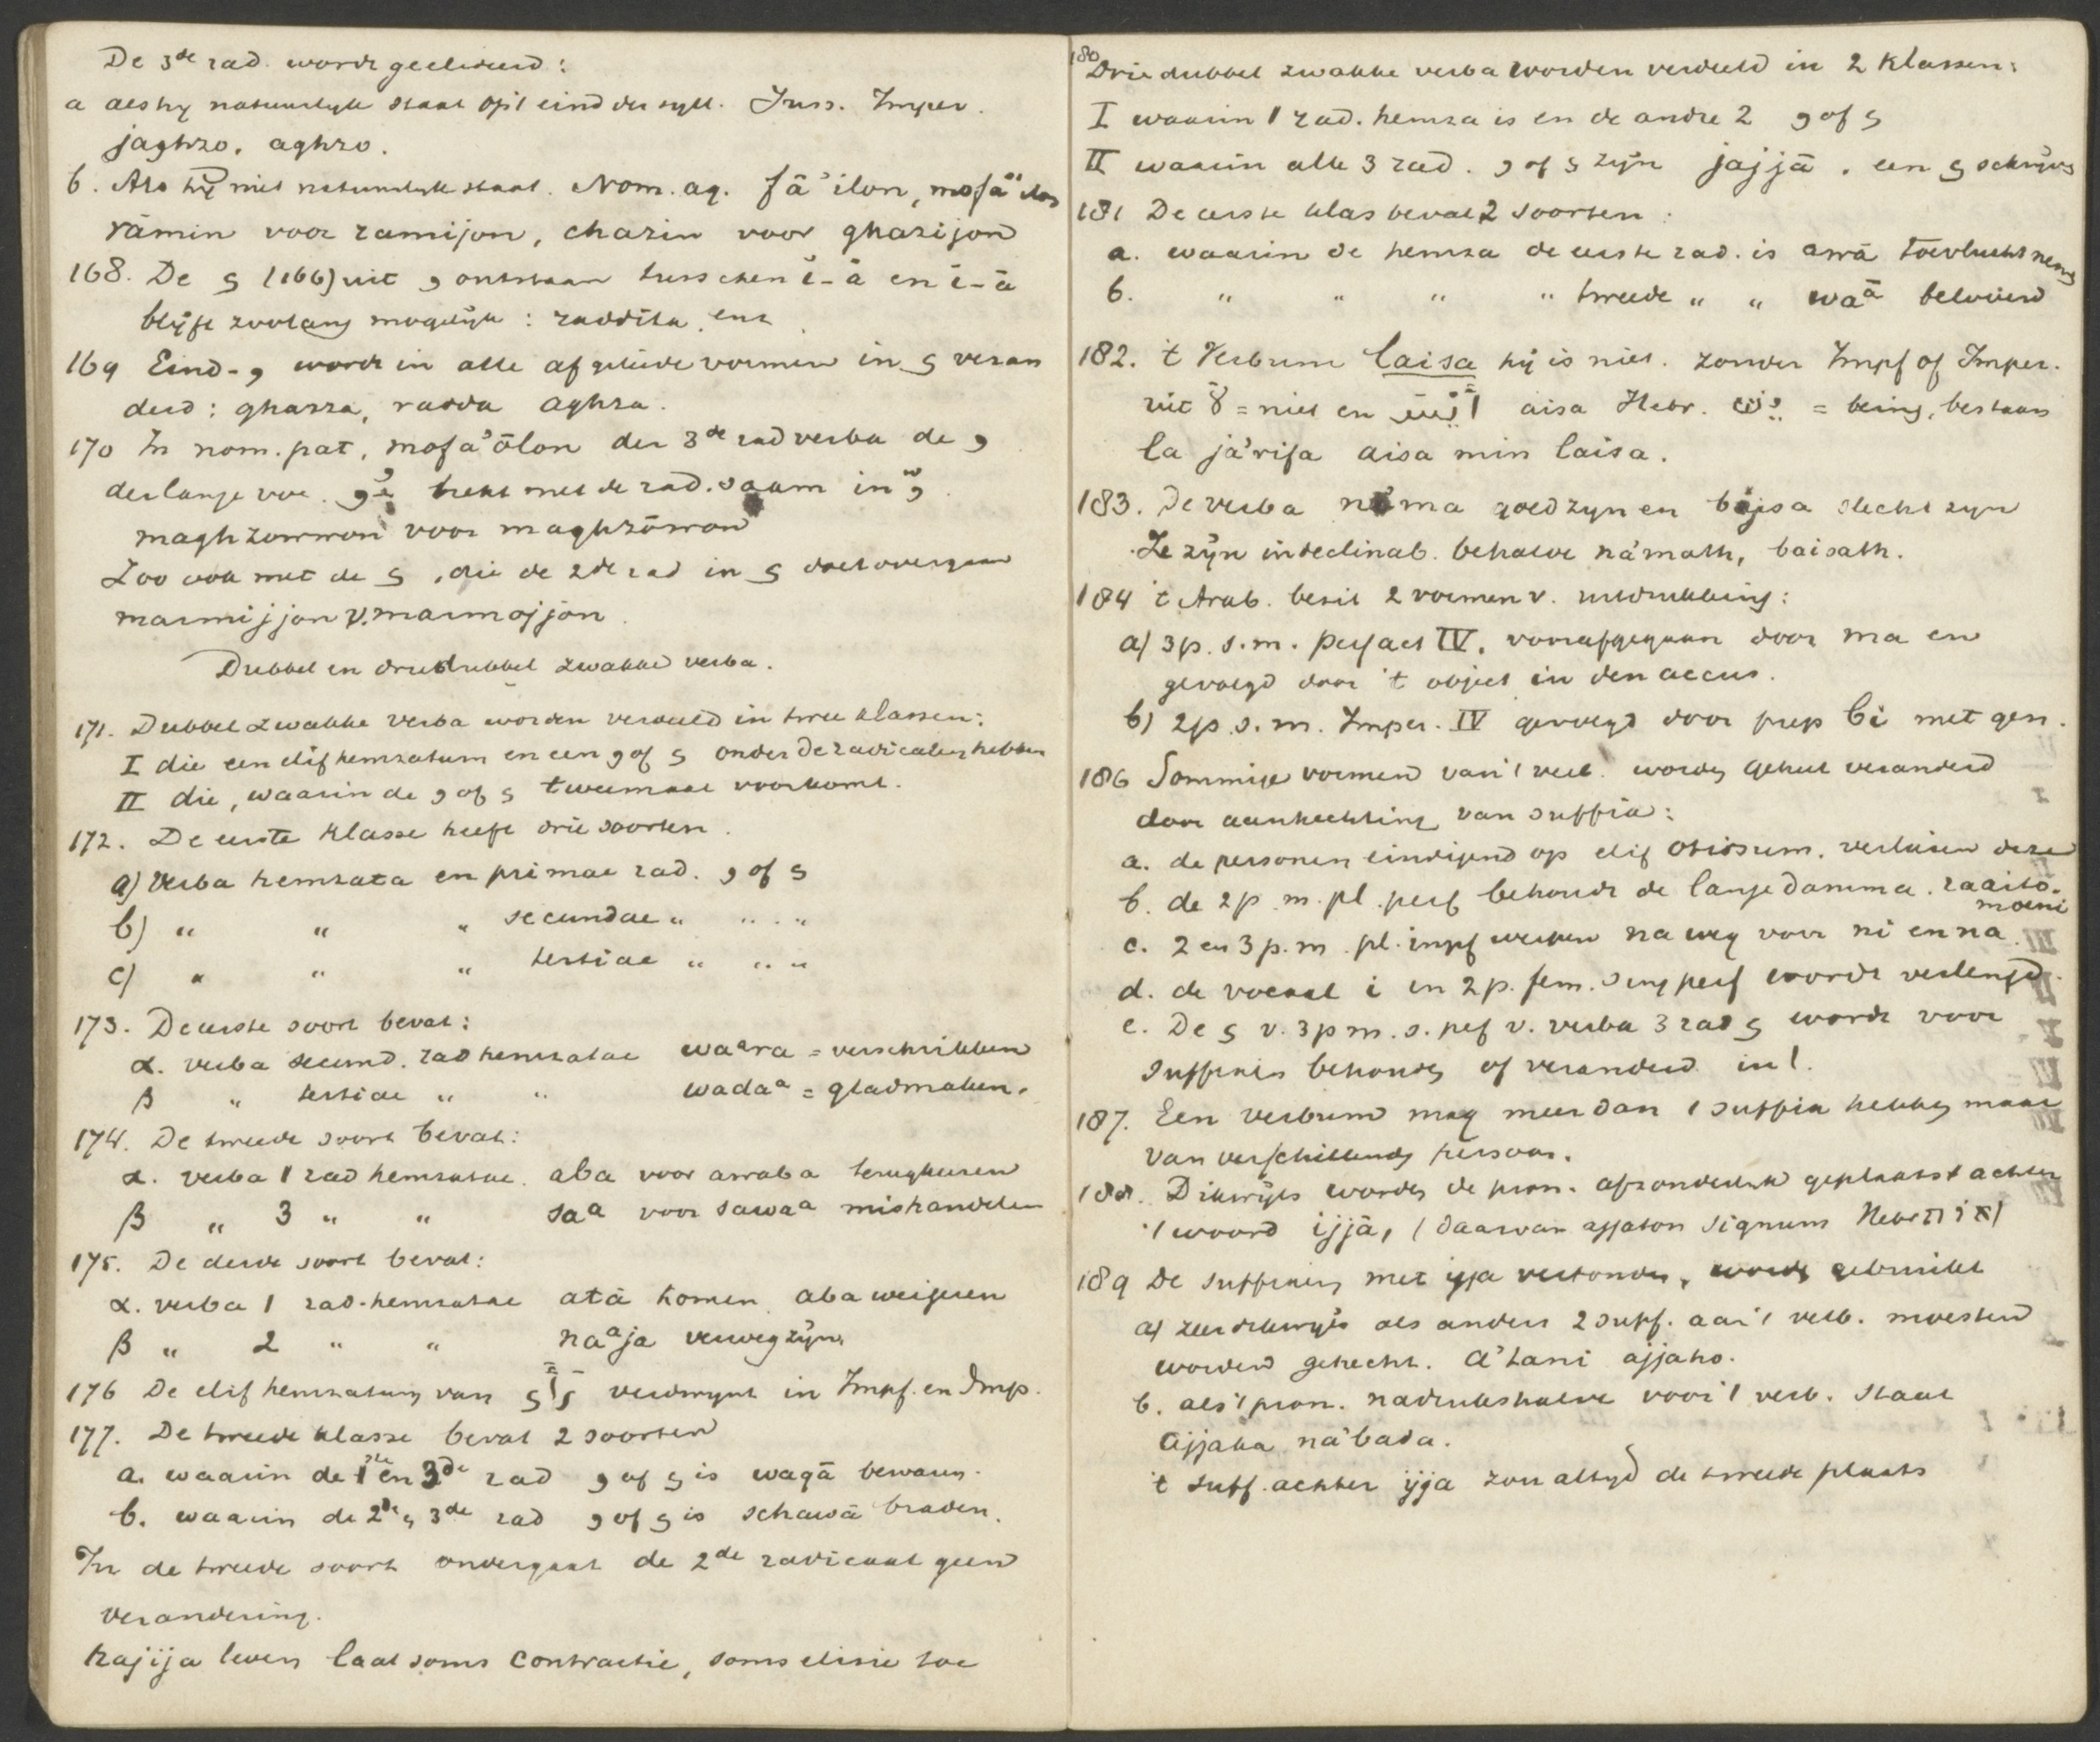 De 3de rad. wordt geelideerd:
a als hy natuurlyk staat op 't eind der syll. Juss. Imper.
jaghzo, aghzo.
b. Als hy niet natuurlyk staat. Nom. ag. fā'ilon,
rāmin voor ramijon, ghazin voor ghazijon
168. De ى (166) uit و ontstaan tusschen ĭ-ā en ĭ-ă
blijft zoolang mogelijk: raddita, enz
169 Eind-و wordt in alle afgeleide vormen in ى veran
derd: ghazza, radda aghza.
170 In nom. pat, mofa'ōlon der 3de rad verba de و
der lange voc. trekt met de rad. saam in وّ
maghzowwon voor maghzōwon
Zoo ook met de ى, die de 2de rad in ى doet overgaan
marmijjon v. marmojjon.
Dubbel en driedubbel zwakke verba.
171. Dubbel zwakke verba worden verdeeld in twee klassen:
I die een elif hemzatum en een و of ى onder de radicalen hebben
II die, waarin de و of ى tweemaal voorkomt.
172. De eerste klasse heeft drie soorten.
a) Verba hemzata en primae rad. و of ى
b) " " " secundae " " "
c) " " " tertiae " " "
173. De eerste soort bevat:
α. verba secund. rad hemzatae waara = verschrikken
β " tertiae " " wadaa = gladmaken.
174. De tweede soort bevat:
α. verba 1 rad hemzatae. aba voor awaba terugkeeren
β " 3 " " saa voor sawaa mishandelen
175. De derde soort bevat:
α. verba 1 rad. hemzatae atā komen aba weigeren
β " 2 " " naaja verweg zijn
176 De elif hemzatum van رأى verdwynt in Impf. en Imp.
177. De tweede klasse bevat 2 soorten
a. waarin de 1ste en 3de rad و of ى is waqā bewaren.
b. waarin de 2de, 3de rad و of ى is schawā braden.
In de tweede soort ondergaat de 2de radicaal geen
verandering.
hajija leven laat soms contractie, soms elisie toe
180 Driedubbel zwakke verba worden verdeeld in 2 klassen:
I waarin 1 rad. hemza is en de andre 2 و of ى
II waarin alle 3 rad. و of ى zijn jajjā. een ى schrijven
181 De eerste klas bevat 2 soorten:
a. waarin de hemza de eerste rad. is awā toevlucht nemen
b. " " " " tweede " " waā beloven
182. 't Verbum laisa hij is niet. zonder Impf of Imper.
uit لا = niet en أيس aisa Hebr. יש = being, bestaan
la já'rifa aisa min laisa.
183. De verba na'ma goed zyn en bajsa slecht zyn
Ze zijn indeclinab. behalve ná'math, baisath.
184 't Arab. bezit 2 vormen v. uitdrukking:
a) 3p. s. m. perfect IV, voorafgegaan door ma en
gevolgd door 't object in den accus.
b) 2p. s. m. Imper. IV gevolgd door prep bi met gen.
186 Sommige vormen van 't verb. worden geheel veranderd
door aanhechting van suffixa:
a. de personen eindigend op elif otiosum, verliezen deze
b. de 2p. m. pl. perf behoudt de lange damma. raaito-
moeni
c. 2 en 3 p. m. pl. impf werpen na weg voor ni en na.
d. de vocaal i in 2p. fem. sing perf wordt verlengd.
e. De ى v. 3p m. s. pef v. verba 3 rad ى wordt voor
suffixen behouden of veranderd in ا.
187. Een verbum mag meer dan 1 suffix hebben maar
van verschillende persoon.
188. Dikwijls worden de pron. afzonderlijk geplaatst achter
't woord ijjā, (daarvan ajjaton signum Hebr אות)
189 De suffixen met ijja verbonden, worden gebruikt
a) zeer dikwijls als anders 2 suff. aan 't verb. moesten
worden gehecht. a'tani ajjaho.
b. als 't pron. nadrukshalve voor 't verb. staat
ajjaka ná'bada.
't suff. achter ijja zou altyd de tweede plaats